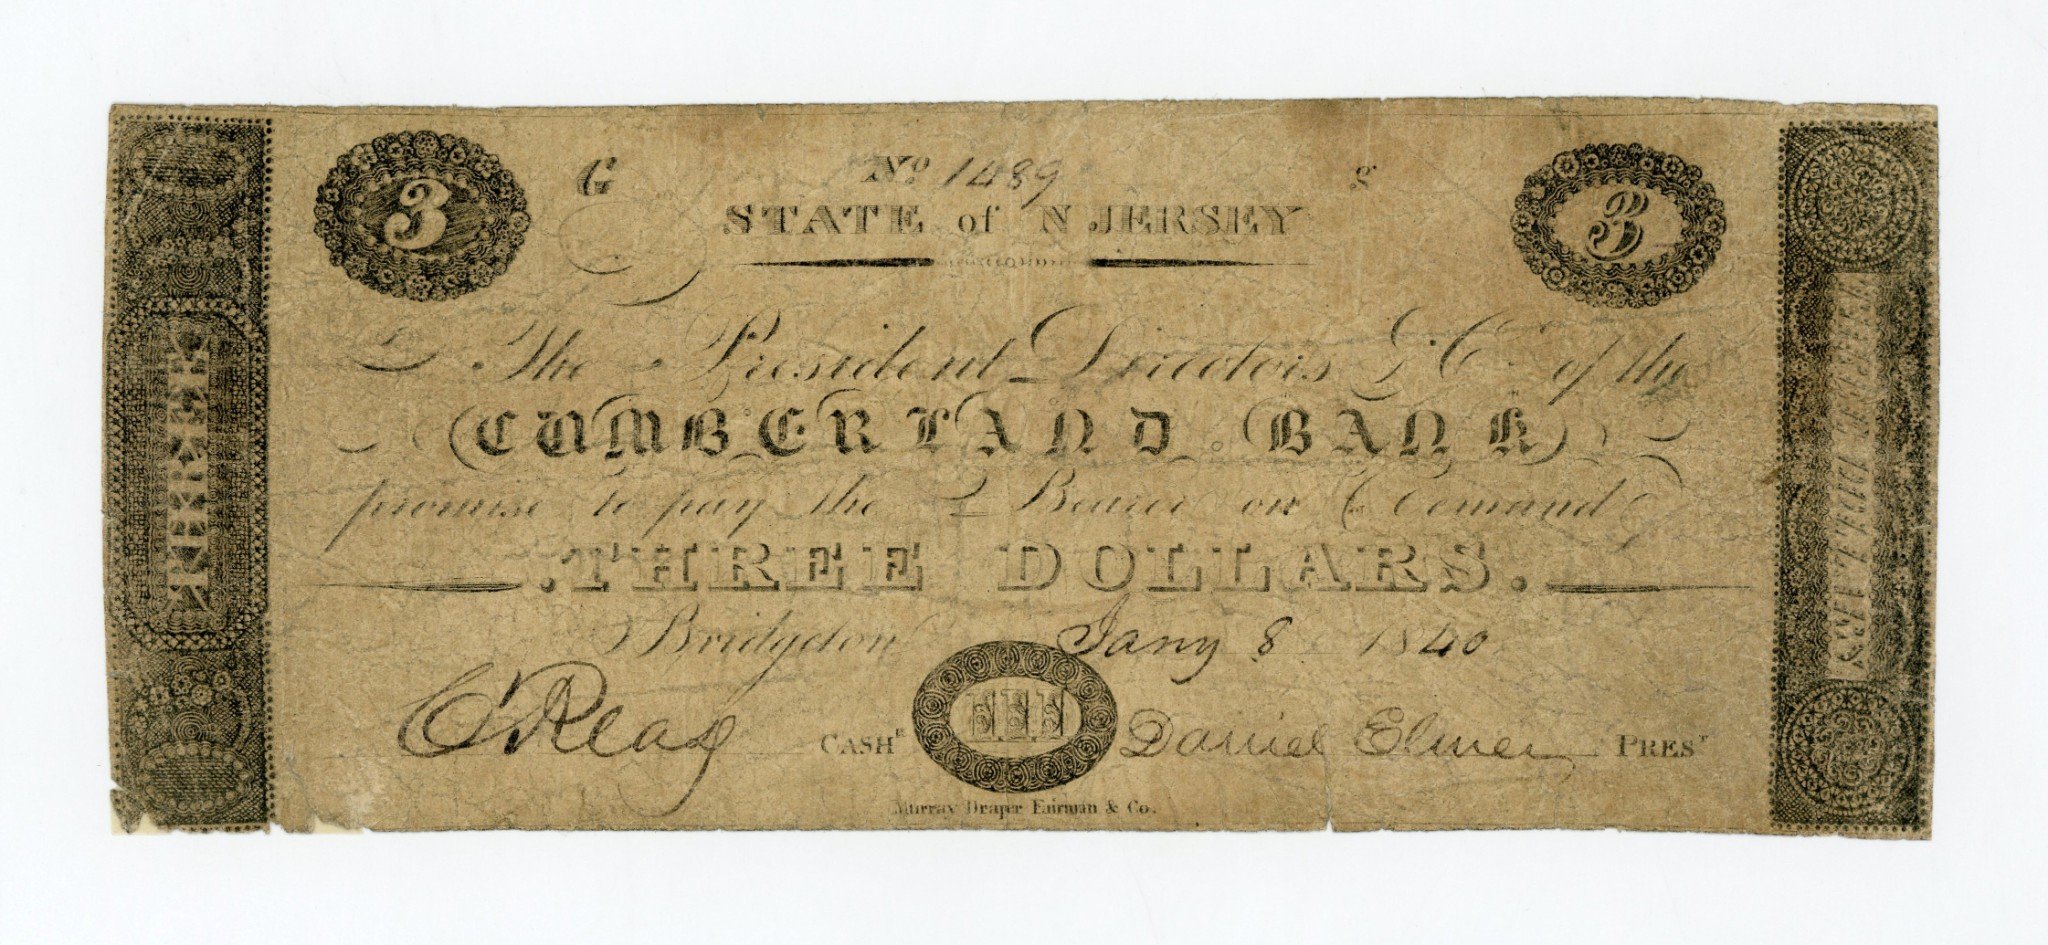 3
G
No 1489
3
STATE of N JERSEY
The President Directors & Co. of the
CUMBERLAND BANK
promise to pay the Bearer on Demand
THREE DOLLARS.
Bridgeton Jany 8 1840
C Reas CASHR
III
Daniel Elmer PREST
Murray Draper Fairman & Co.
THREE
THREE DOLLARS